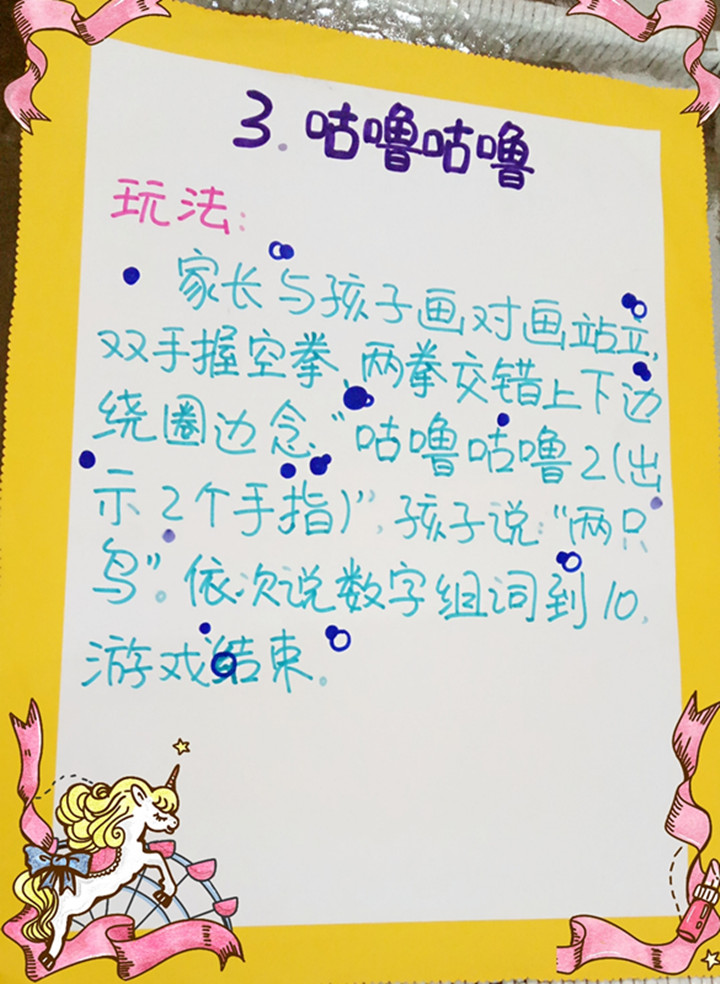 3.咕噜咕噜
玩法:
家长与孩子画对画站立,
双手握空拳、两拳交错上下边
绕圈边念:“咕噜咕噜2(出
示2个手指)”,孩子说:“两只
鸟”。依次说数字组词到10,
游戏结束。